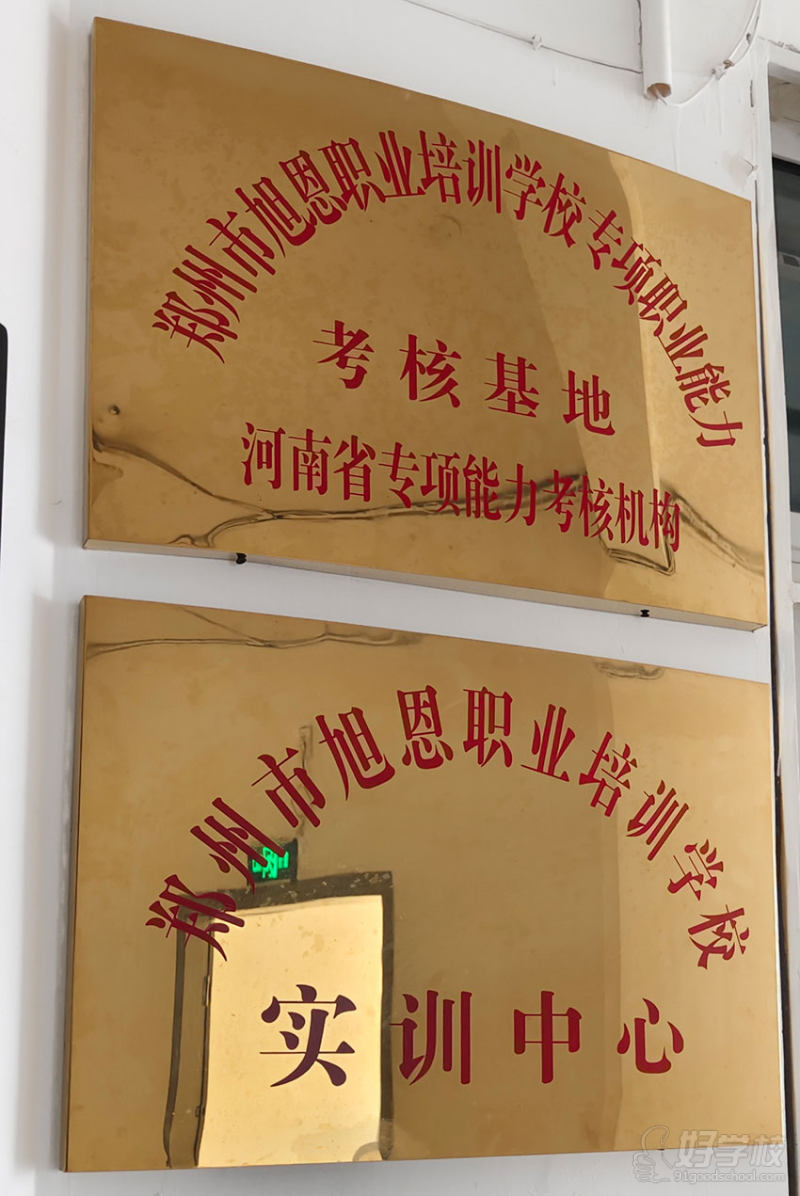 郑州市旭恩职业培训学校专项职业能力
考核基地
河南省专项能力考核机构
郑州市旭恩职业培训学校
实训中心
好学校
91goodschool.com